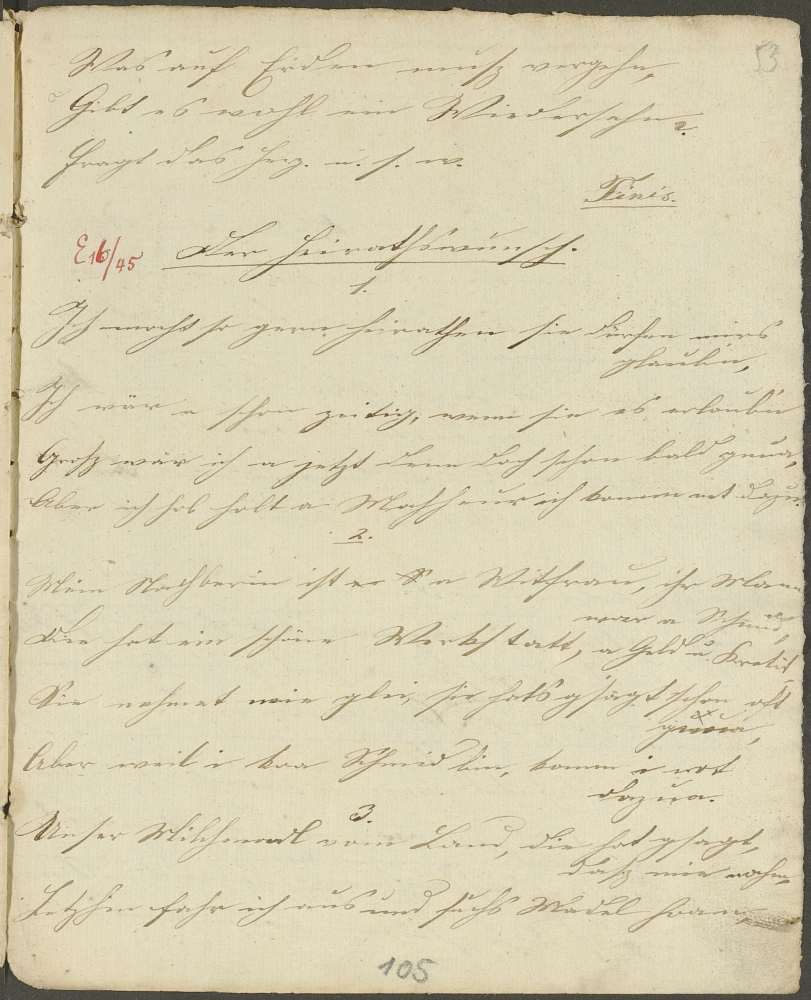 53
Was auf Erden muß vergehn,
Gibt es wohl ein Wiedersehn?
fragt das Herz. u. s. w.
Finis.
E16/45 Der Heirathswunsch.
1.
Ich mocht so gern heirathen sie dürfen mirs
glaub'n,
Ich wär a schon zeitig, wenn sie es erlaub'n
Groß wär ich a jetzt denn doch schon bald gnua,
Aber ich hab halt a Malheur ich komm net dazu.
2.
Mein Nachberin ist a Witfrau, ihr Mann
war a Schmid,
Die hat ein schöne Werkstatt, a Geld u. Kredit
Sie nehmet mie glei, sie hats g'sagt schon oft
gnua,
Aber weil i koa Schmid bin, komm i not
dazua.
3.
Unser Milchmadl vom Land, die hat gsagt,
daß mie nahm,
fahr ich aus und suchs Madel hoam,
105